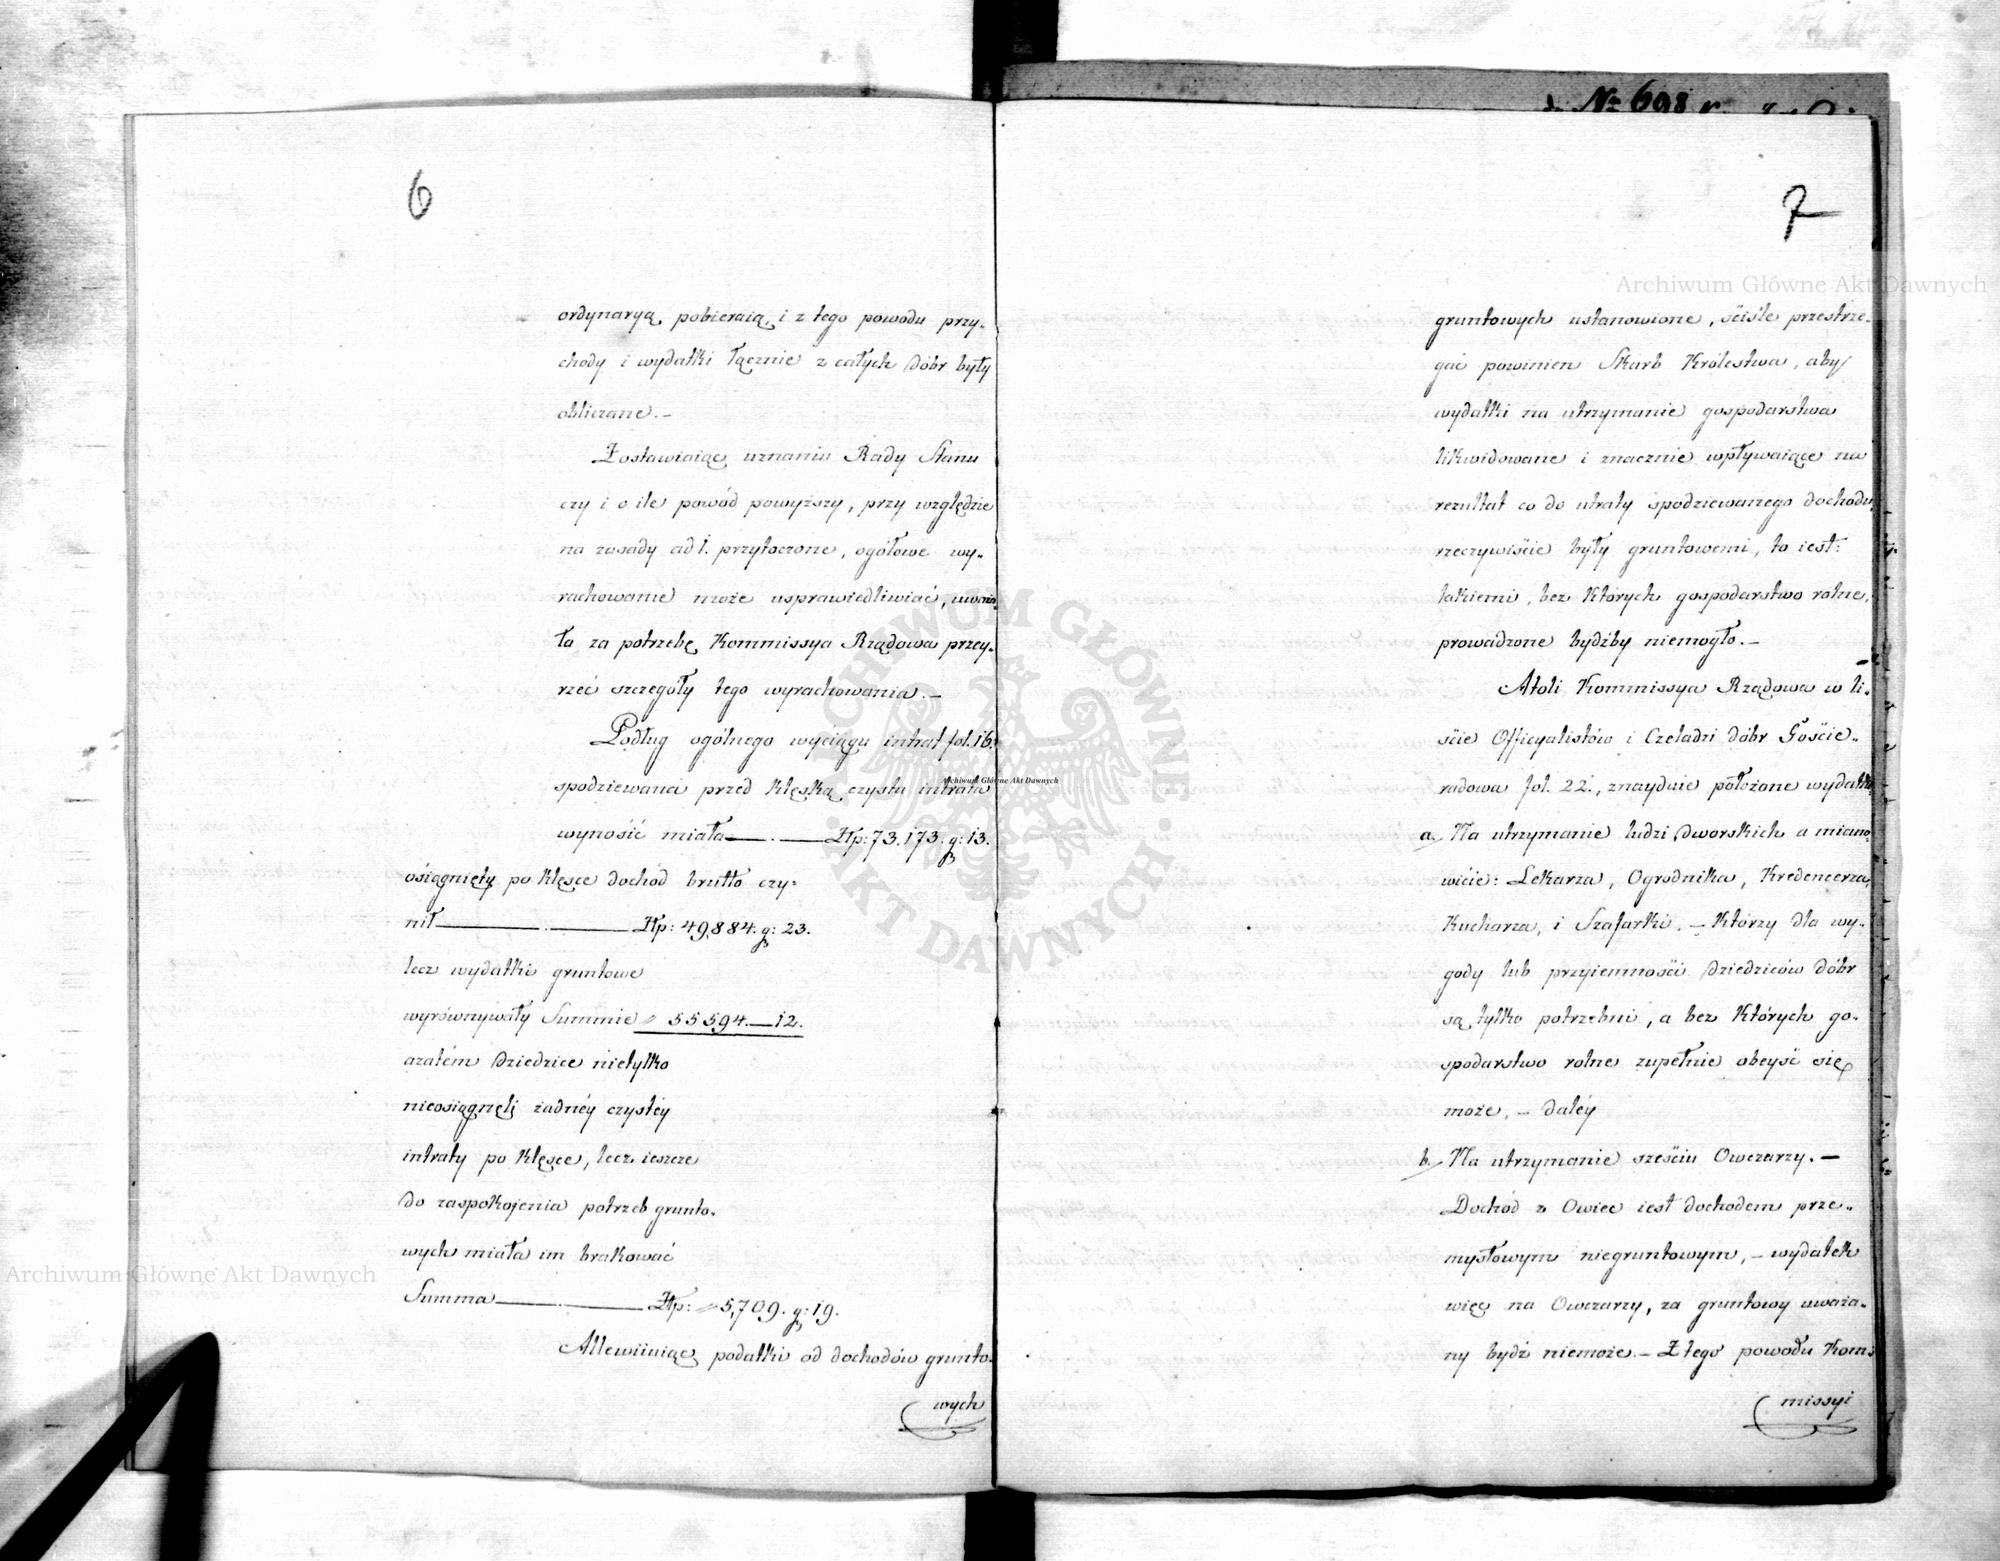 6
ordynaryą pobieraią, i z tego powodu przy-
chody i wydatki łącznie z całych dóbr były
obliczane.-
Zostawiaiąc uznaniu Rady Stanu
czy i o ile powód powyższy, przy względzie
na zasady ad 1. przytoczone, ogółowe wy-
rachowanie może usprawiedliwiać, uważa-
ła za potrzebę Kommissya Rządowa przey-
rzeć szczegóły tego wyrachowania.-
Podług ogólnego wyciągu intrat fol. 16.
spodziewana przed klęską czysta intrata
wynosić miała — . — Złp: 73.173. g: 13.
osiągnięty po klęsce dochód brutto czy-
nił — . — Złp: 49,884. g: 23.
lecz wydatki gruntowe
wyrównywały Summie " 55594. — 12.
azatém Dziedzice nietylko
nieosiągnęli żadnéy czystéy
intraty po klęsce, lecz ieszcze
do zaspokojenia potrzeb grunto-
wych miała im brakować
Summa — . — Złp: " 5,709. g: 19.
Allewiiuiąc podatki od dochodów grunto-
wych
Nr 698
7
gruntowych ustanowione, ściśle przestrze-
gać powinien Skarb Królestwa, aby
wydatki na utrzymanie gospodarstwa
likwidowane i znacznie wpływaiące na
rezultat co do utraty spodziewanego dochodu,
rzeczywiście były gruntowemi, to iest:
takiemi, bez których gospodarstwo rolne,
prowadzone bydźby niemogło.-
Atoli Kommissya Rządowa w li-
ście Officyalistów i Czeladzi dóbr Goście-
radowa fol. 22., znayduie położone wydatki
a. Na utrzymanie ludzi dworskich a miano-
wicie: Lekarza, Ogrodnika, Kredencerza,
Kucharza, i Szafarki. - którzy dla wy-
gody lub przyiemności dziedziców dóbr
są tylko potrzebni, a bez których go-
spodarstwo rolne zupełnie obeyść się
może, - daléy
b. Na utrzymanie sześciu Owczarzy. -
Dochód z Owiec iest dochodem prze-
mysłowym niegruntowym, - wydatek
więc na Owczarzy, za gruntowy uważa-
ny bydź niemoże.- Z tego powodu Kom-
missyi
Archiwum Główne Akt Dawnych
Archiwum Główne Akt Dawnych
Archiwum Główne Akt Dawnych
ARCHIWUM GŁÓWNE AKT DAWNYCH